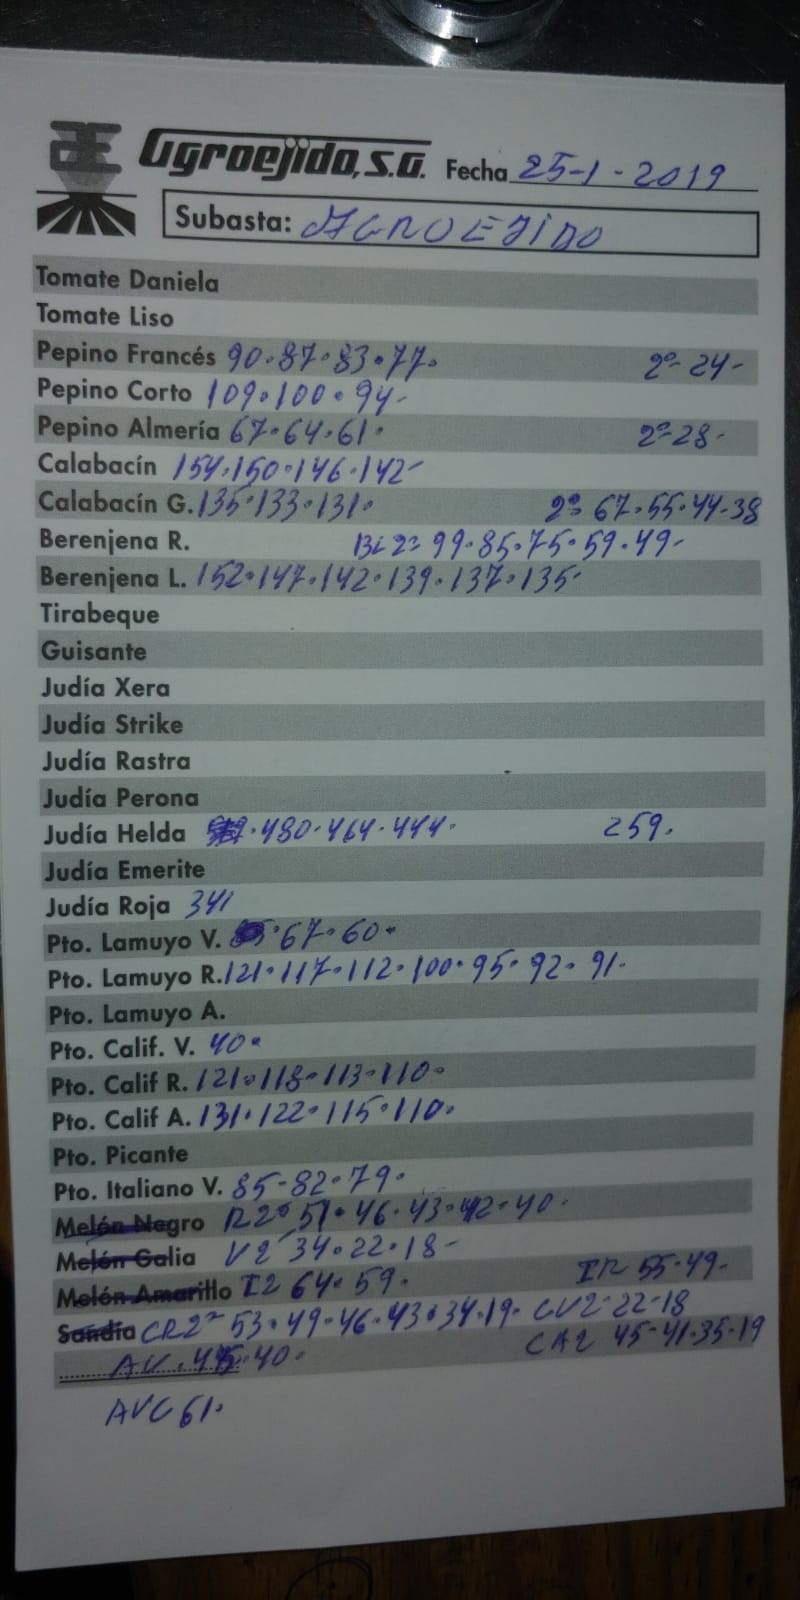 Agroejido, S.A. Fecha 25-1-2019
Subasta: AGROEJIDO
Tomate Daniela
Tomate Liso
Pepino Francés 90·87·83·77· 2ª-24-
Pepino Corto 109·100·94-
Pepino Almería 67·64·61· 2ª-28-
Calabacín 154·150·146·142-
Calabacín G. 135·133·131· 2ª 67·55·44·38
Berenjena R. BL2ª 99·85·75·59·49-
Berenjena L. 152·147·142·139·137·135·
Tirabeque
Guisante
Judía Xera
Judía Strike
Judía Rastra
Judía Perona
Judía Helda ·480·464·444· 259.
Judía Emerite
Judía Roja 341
Pto. Lamuyo V. ·67·60·
Pto. Lamuyo R. 121·117·112·100·95·92·91·
Pto. Lamuyo A.
Pto. Calif. V. 40·
Pto. Calif R. 121·118·113·110·
Pto. Calif A. 131·122·115·110·
Pto. Picante
Pto. Italiano V. 85-82-79·
Melón Negro R2ª 51·46·43·42·40·
Melón Galia V2 34·22·18-
Melón Amarillo I2 64·59· IR 55·49-
Sandía CR2ª 53·49·46·43·34·19· CV2-22-18
AV· 40· CA2 45-41·35·19
AVC 61·